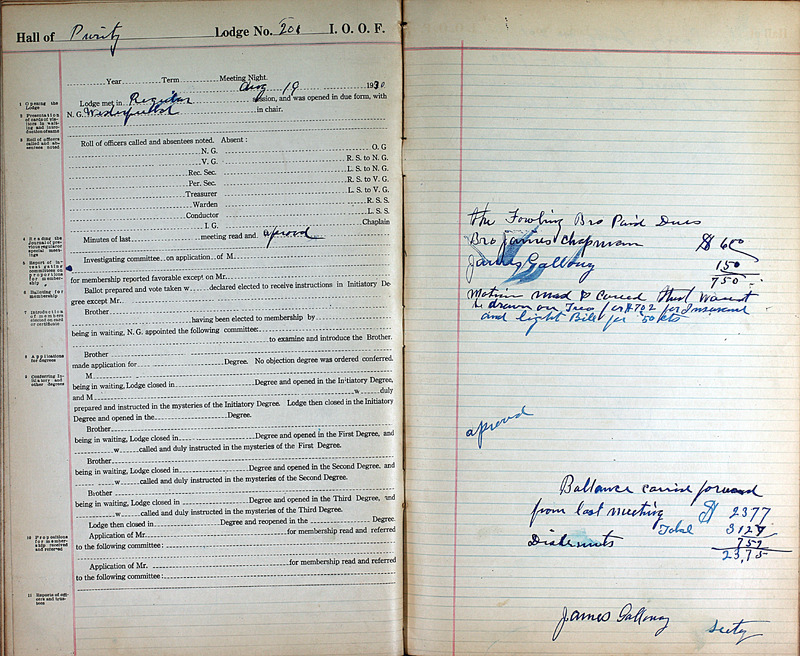 Hall of Purity Lodge No. 206 I. O. O. F.
Year Term Meeting Night.
Aug 19 1930
1 Opening the Lodge
Lodge met in Regular session, and was opened in due form, with
2 Presentation of cards of visitors in waiting and introduction of same
N. G. in chair.
3 Roll of officers called and absences noted
Roll of officers called and absences noted. Absent:
N. G. O. G
V. G. R. S. to N. G.
Rec. Sec. L. S. to N. G.
Per. Sec. R. S. to V. G.
Treasurer L. S. to V. G.
Warden R. S. S.
Conductor L. S. S.
I. G. Chaplain
4 Reading the Journal of previous regular or special meetings
Minutes of last meeting read and aproved
5 Report of investigating committees on propositions for membership
Investigating committee on application of M.
for membership reported favorable except on Mr.
6 Balloting for membership
Ballot prepared and vote taken w declared elected to receive instructions in Initiatory De
gree except Mr.
7 Introduction of members elected on card or certificate
Brother
having been elected to membership by
being in waiting, N. G. appointed the following committee:
to examine and introduce the Brother.
8 Applications for degrees
Brother
made application for Degree. No objection degree was ordered conferred.
9 Conferring Initiatory and other degrees
M
being in waiting, Lodge closed in Degree and opened in the Initiatory Degree,
and M w duly
prepared and instructed in the mysteries of the Initiatory Degree. Lodge then closed in the Initiatory
Degree and opened in the Degree.
Brother
being in waiting, Lodge closed in Degree and opened in the First Degree, and
w called and duly instructed in the mysteries of the First Degree.
Brother
being in waiting, Lodge closed in Degree and opened in the Second Degree, and
w called and duly instructed in the mysteries of the Second Degree.
Brother
being in waiting, Lodge closed in Degree and opened in the Third Degree, and
w called and duly instructed in the mysteries of the Third Degree.
Lodge then closed in Degree and reopened in the Degree.
10 Propositions for membership received and referred
Application of Mr. for membership read and referred
to the following committee:
Application of Mr. for membership read and referred
to the following committee:
11 Reports of officers and trustees
the Fowling Bro Paid Dues
Bro James Chapman $ 600
James Galloway 150
750
Motion mad & caried that warent
be drawn on Tres for $7.02 for Insurance
and light Bill for 50 cts
aproved
Ballance caried forward
from last meeting $ 2377
Total 3127
752
23,75
James Galloway Secty